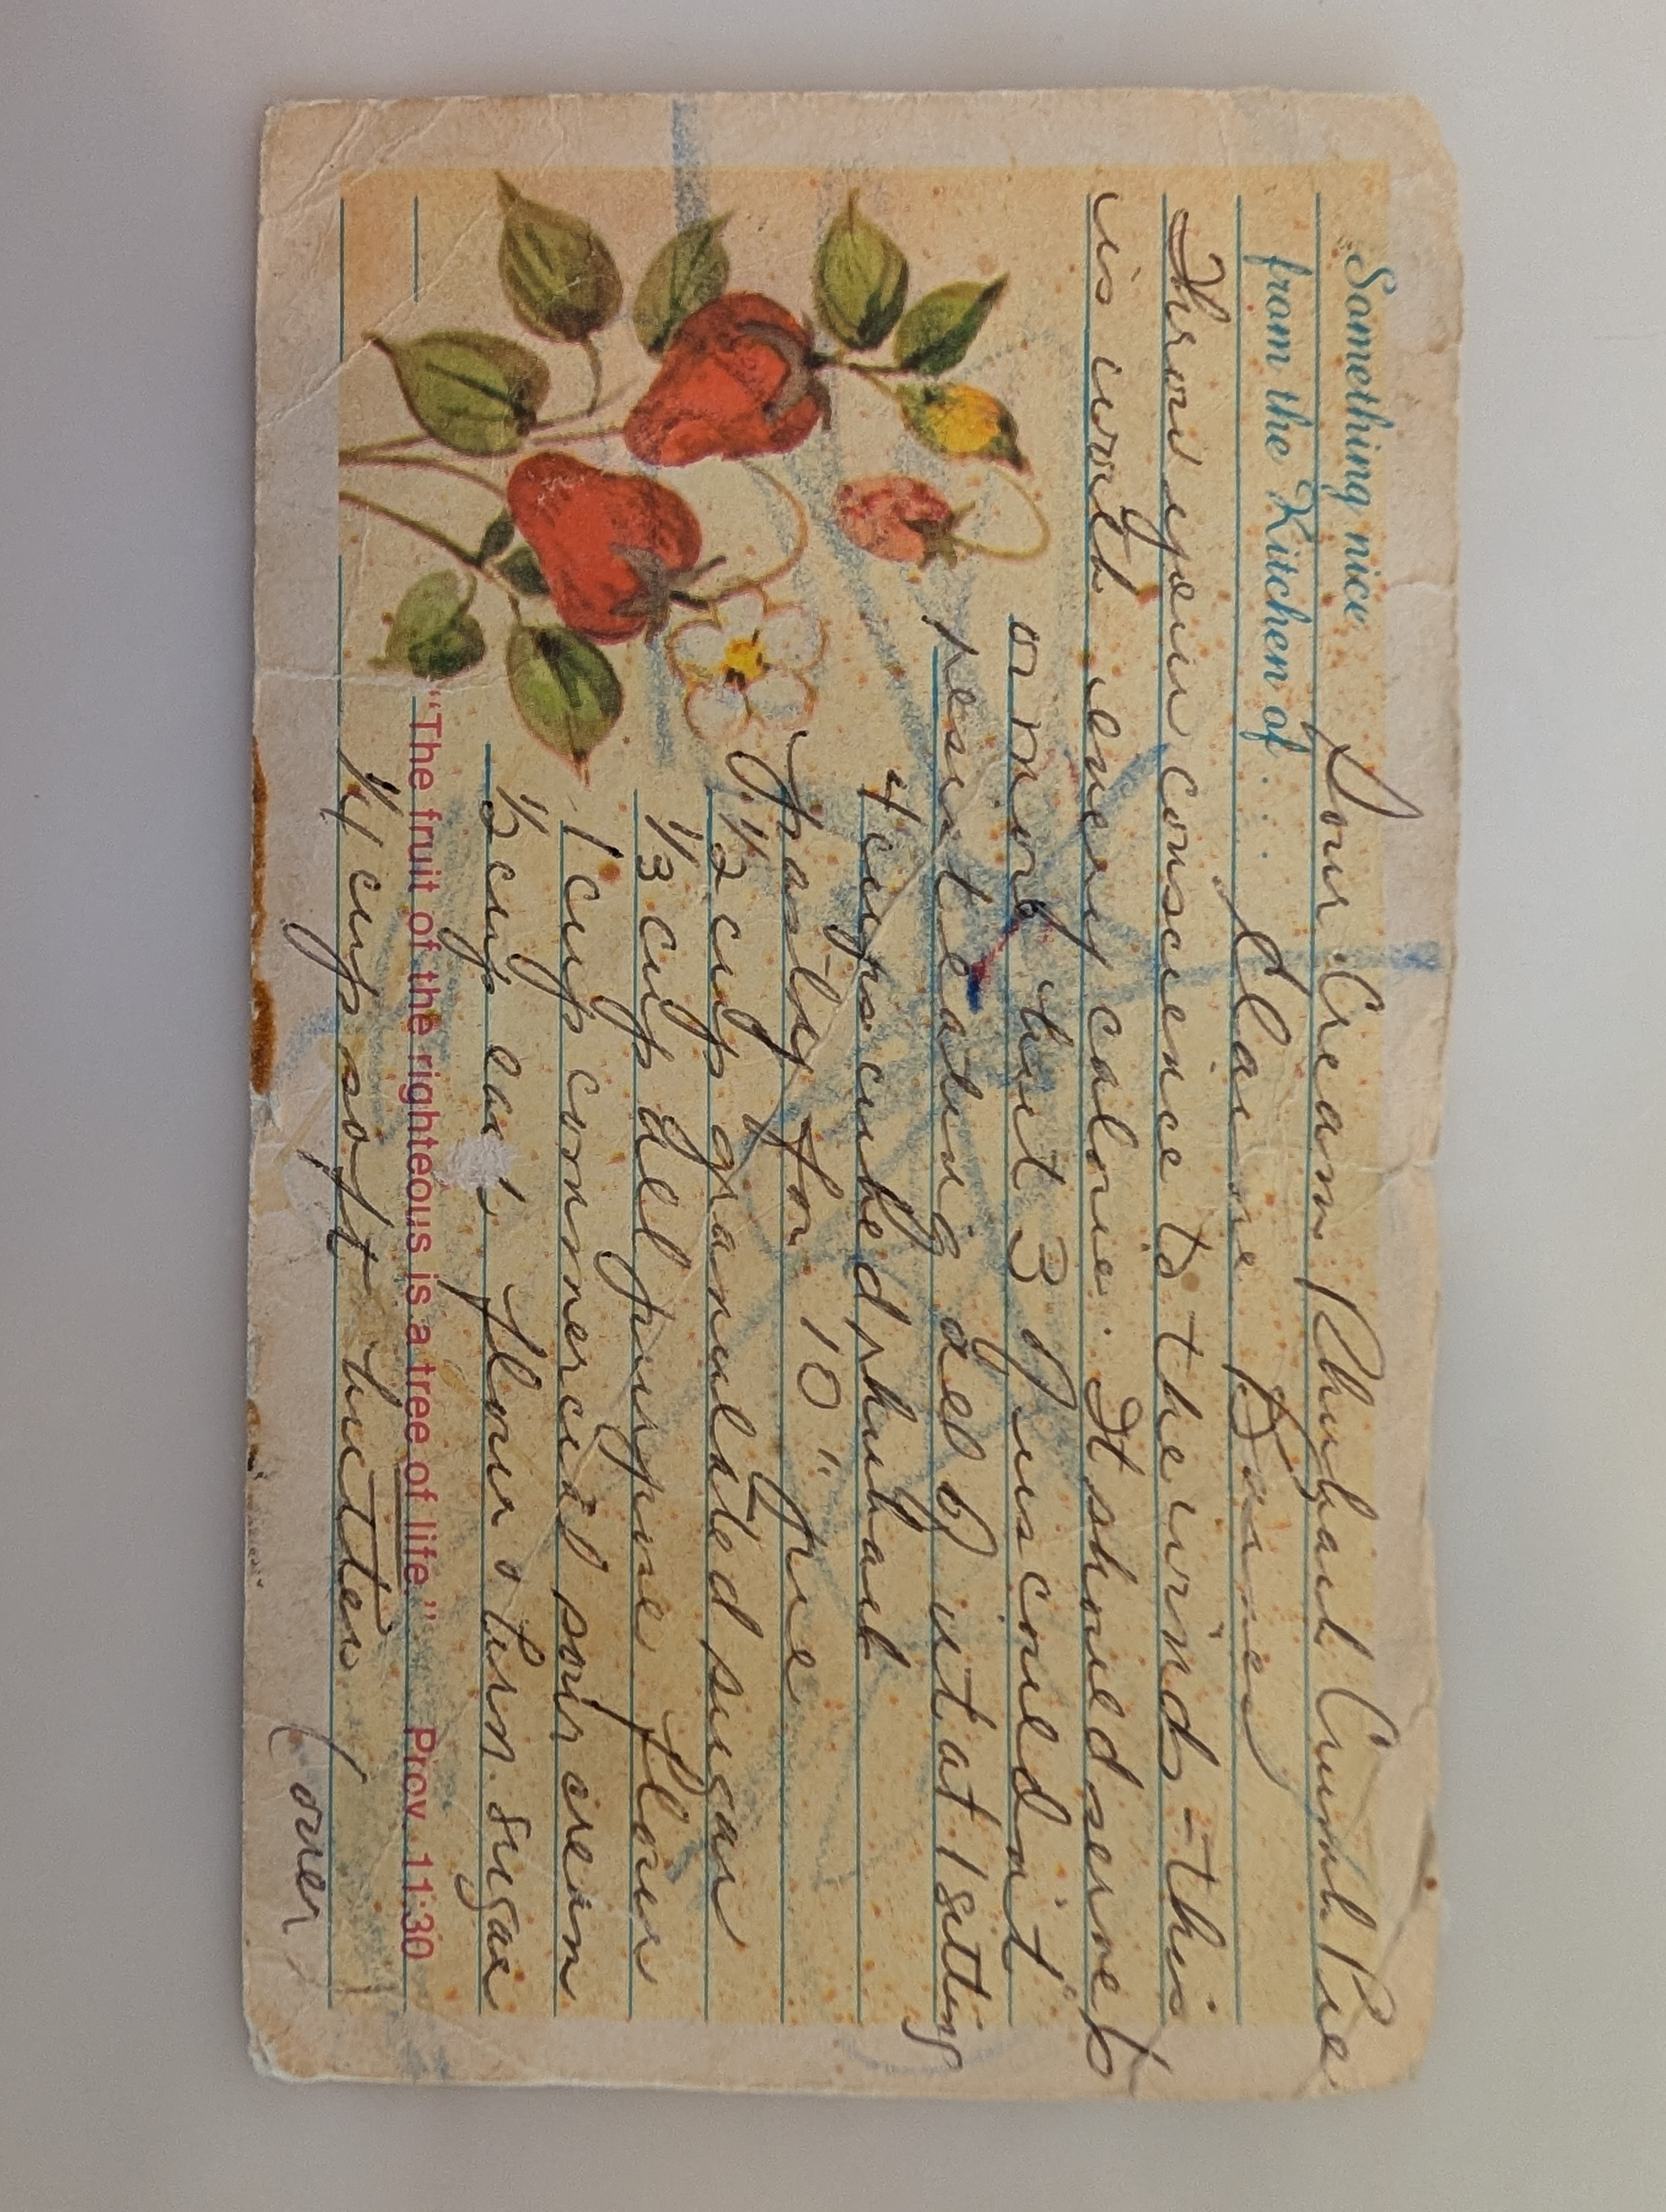 Something nice Sour Cream Rhubarb Crumb Pie
from the Kitchen of... Elaine
Throw your conscience to the winds - this
is worth every calorie. It should serve 6
or more but 3 of us couldn't
resist eating all of it at 1 sitting
4 cups cubed rhubarb
Pastry for 10" pie
1 1/2 cup granulated sugar
1/3 cup all purpose flour
1 cup commercial sour cream
1/2 cup ea. flour & brn. sugar
"The fruit of the righteous is a tree of life." Prov. 11:30
1/4 cup soft butter
(over)